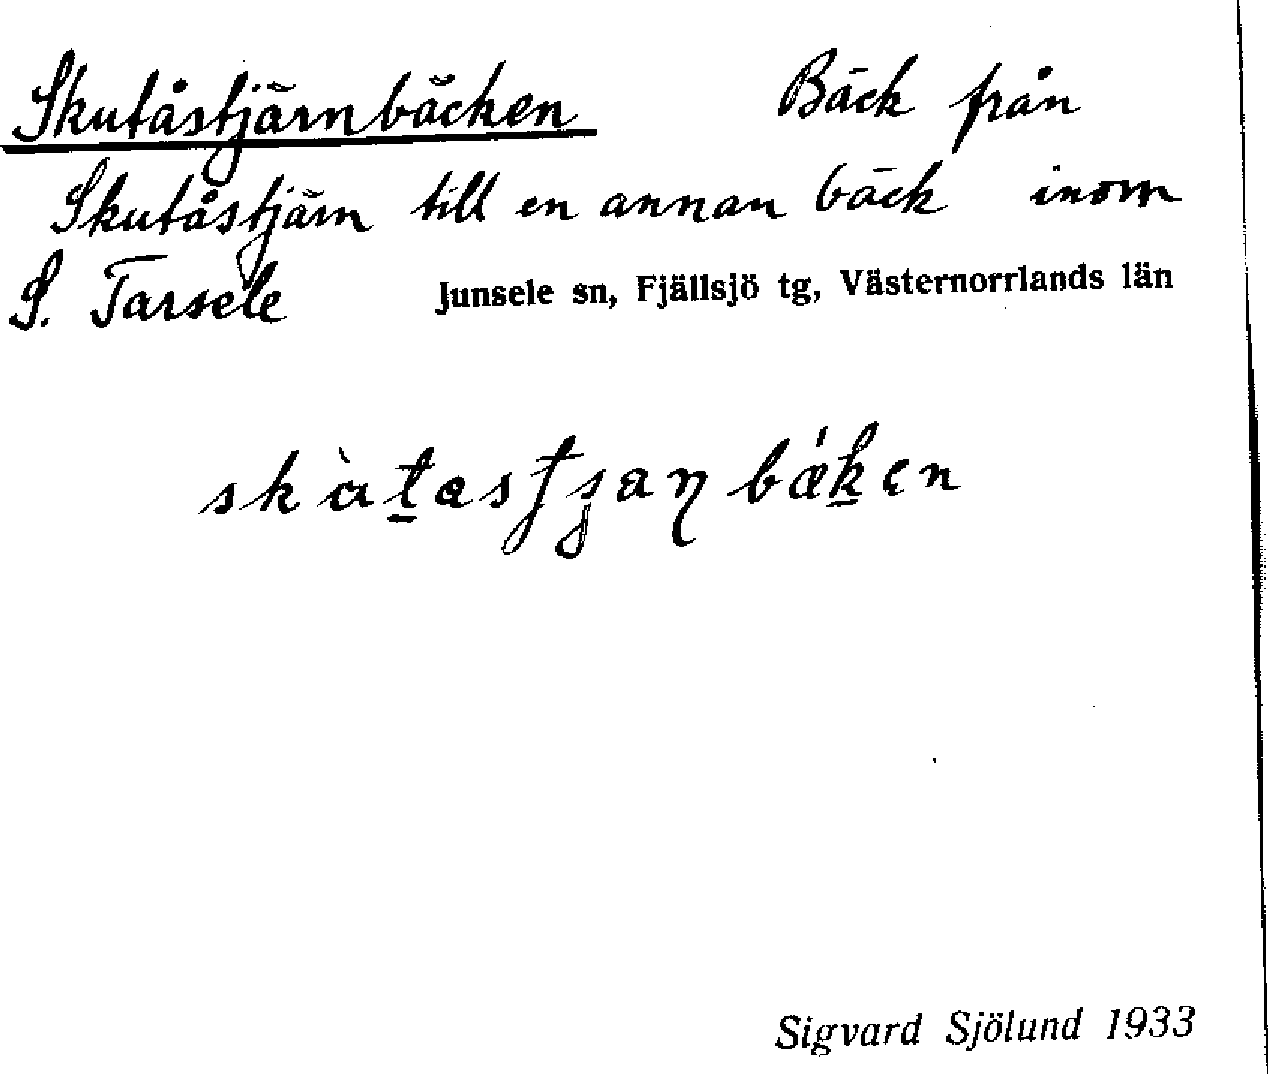 Skutåstjärnbäcken Bäck från
Skutåstjärn till en annan bäck inom
S. Tarsele Junsele sn, Fjällsjö tg, Västernorrlands län
Sigvard Sjölund 1933